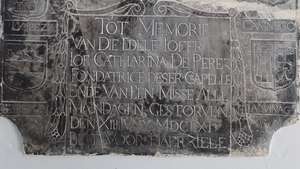 TOT MEMORIE
VAN DIE EDELE IOFFR
IOF CATHARINA DE PERES
FONDATRICE DESER CAPELLE
ENDE VAN EEN MISSE ALLE
MANDAGEN, GESTORVEN
DEN XIII
BIDT VOOR HAER ZIELE